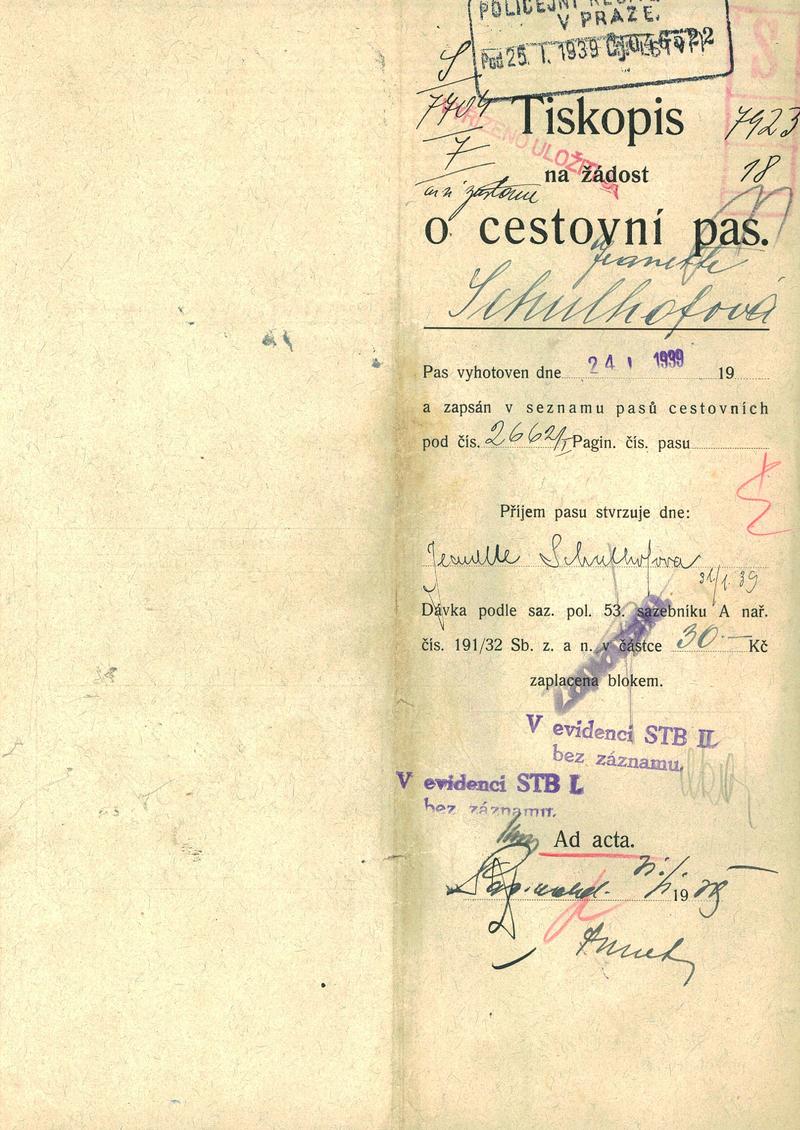 POLICEJNÍ
V PRAZE.
Pod 25. I. 1939 Čj. 046522
S
7704
7
Tiskopis
7923
18
VYŘÍZENO ULOŽIT
na žádost
o cestovní pas.
Jeanette
Schulhofová
Pas vyhotoven dne 24 I 1939 19
a zapsán v seznamu pasů cestovních
pod čís. 2662/I Pagin. čís. pasu
Příjem pasu stvrzuje dne:
Jeanette Schulhofova
31/1.39
Dávka podle saz. pol. 53. sazebníku A nař.
čís. 191/32 Sb. z. a n. v částce 30.— Kč
zaplacena blokem.
V evidenci STB II.
bez záznamu.
V evidenci STB I.
bez záznamu.
Ad acta.
31./I. 19 39